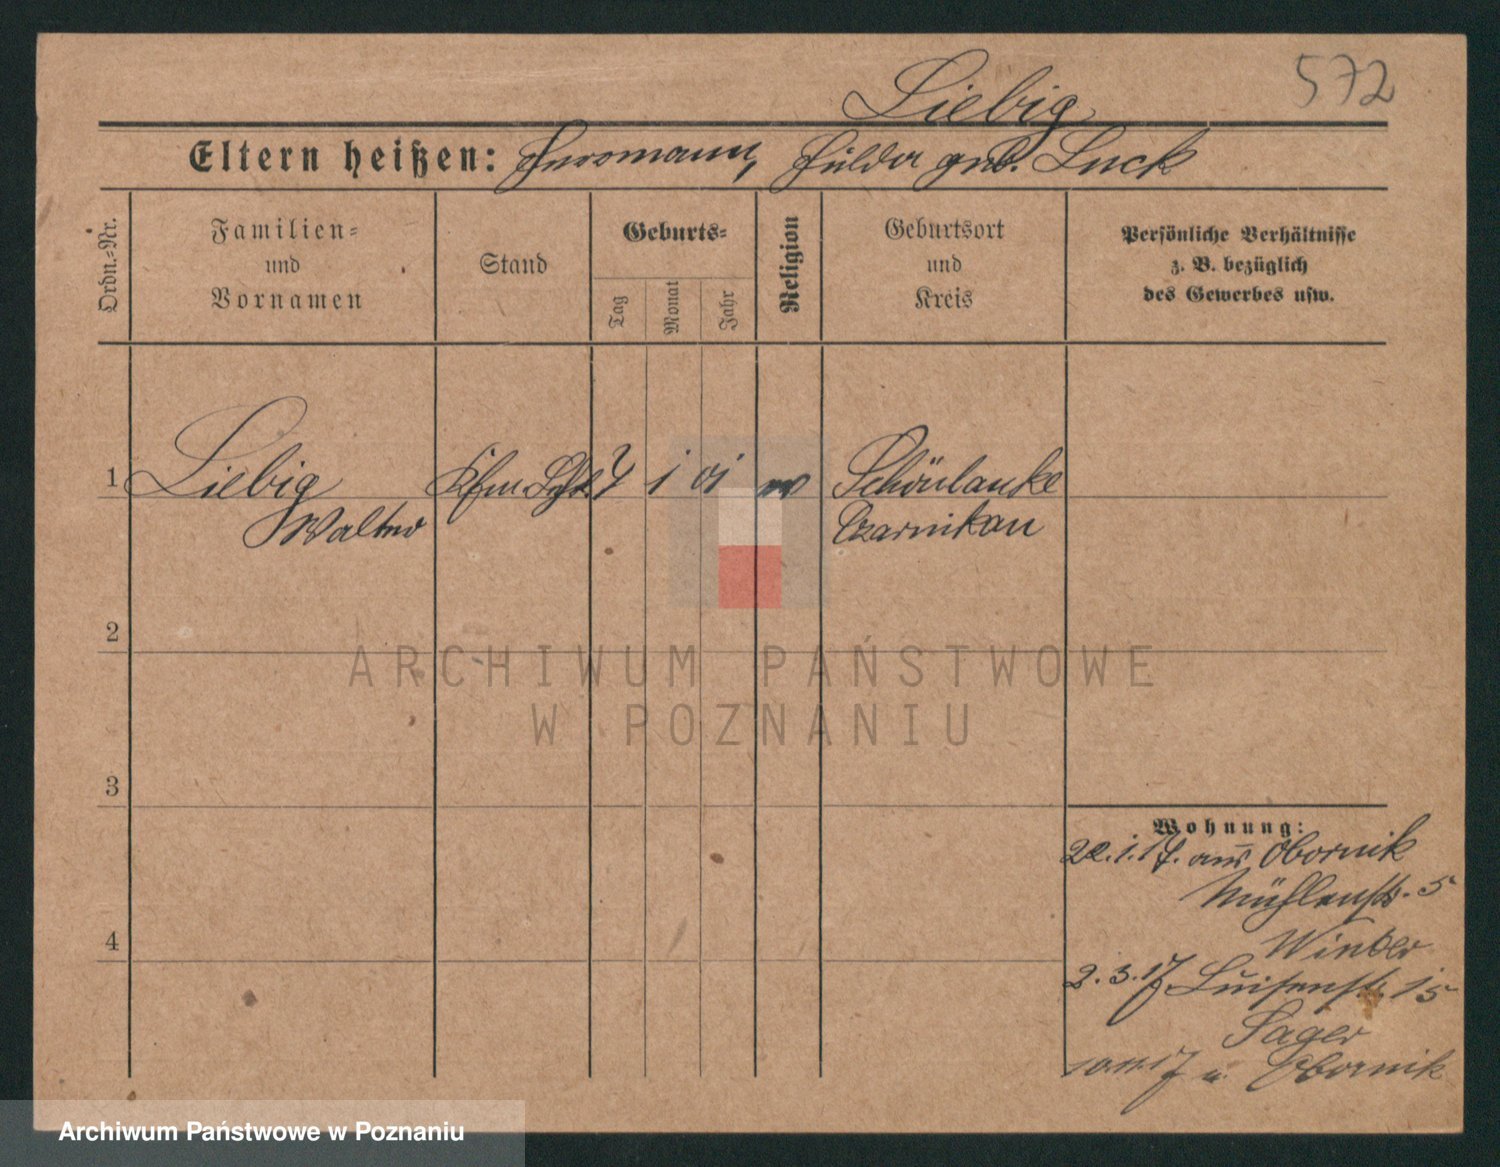 572
Liebig
Eltern heißen: Herrmann, Hulda geb. Luck
Ordn.-Nr.
Familien=
und
Vornamen
Stand
Geburts=
Tag
Monat
Jahr
Religion
Geburtsort
und
Kreis
Persönliche Verhältnisse
z. B. bezüglich
des Gewerbes usw.
1
Liebig
Walter
Kfm. 1 01
Schönlanke
Czarnikau
2
3
4
Wohnung:
22.1.17. aus Obornik
Mühlenstr. 5
Winkler
2.3.17 Luisenstr. 15
Sager
n. Obornik
ARCHIWUM PAŃSTWOWE
W POZNANIU
Archiwum Państwowe w Poznaniu